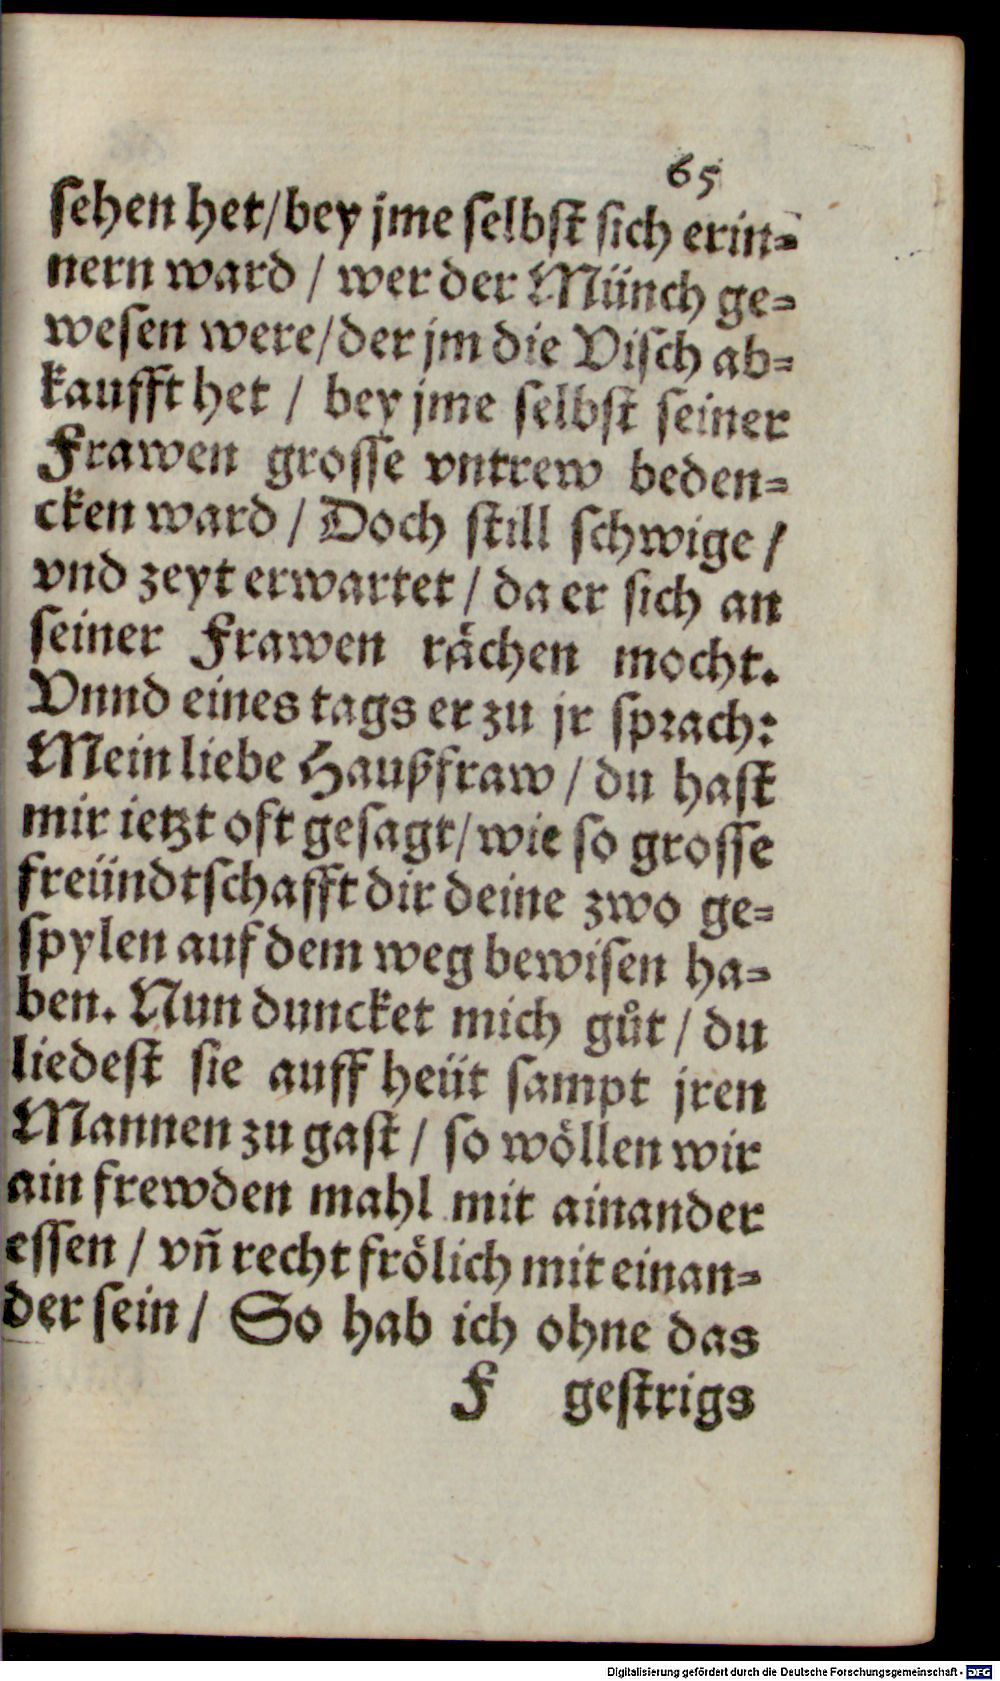 65
sehen het/bey jme selbst sich erin=
nern ward / wer der Münch ge=
wesen were/der jm die Visch ab=
kaufft het / bey jme selbst seiner
Frawen grosse vntrew beden=
cken ward / Doch still schwige /
vnd zeyt erwartet / da er sich an
seiner Frawen rächen mocht.
Vnnd eines tags er zu jr sprach:
Mein liebe Haußfraw / du hast
mir ietzt oft gesagt/wie so grosse
freündtschafft dir deine zwo ge=
spylen auf dem weg bewisen ha=
ben. Nun duncket mich gůt / du
liedest sie auff heüt sampt jren
Mannen zu gast / so wöllen wir
ain frewden mahl mit ainander
essen / vñ recht frölich mit einan=
der sein / So hab ich ohne das
F gestrigs
Digitalisierung gefördert durch die Deutsche Forschungsgemeinschaft - DFG